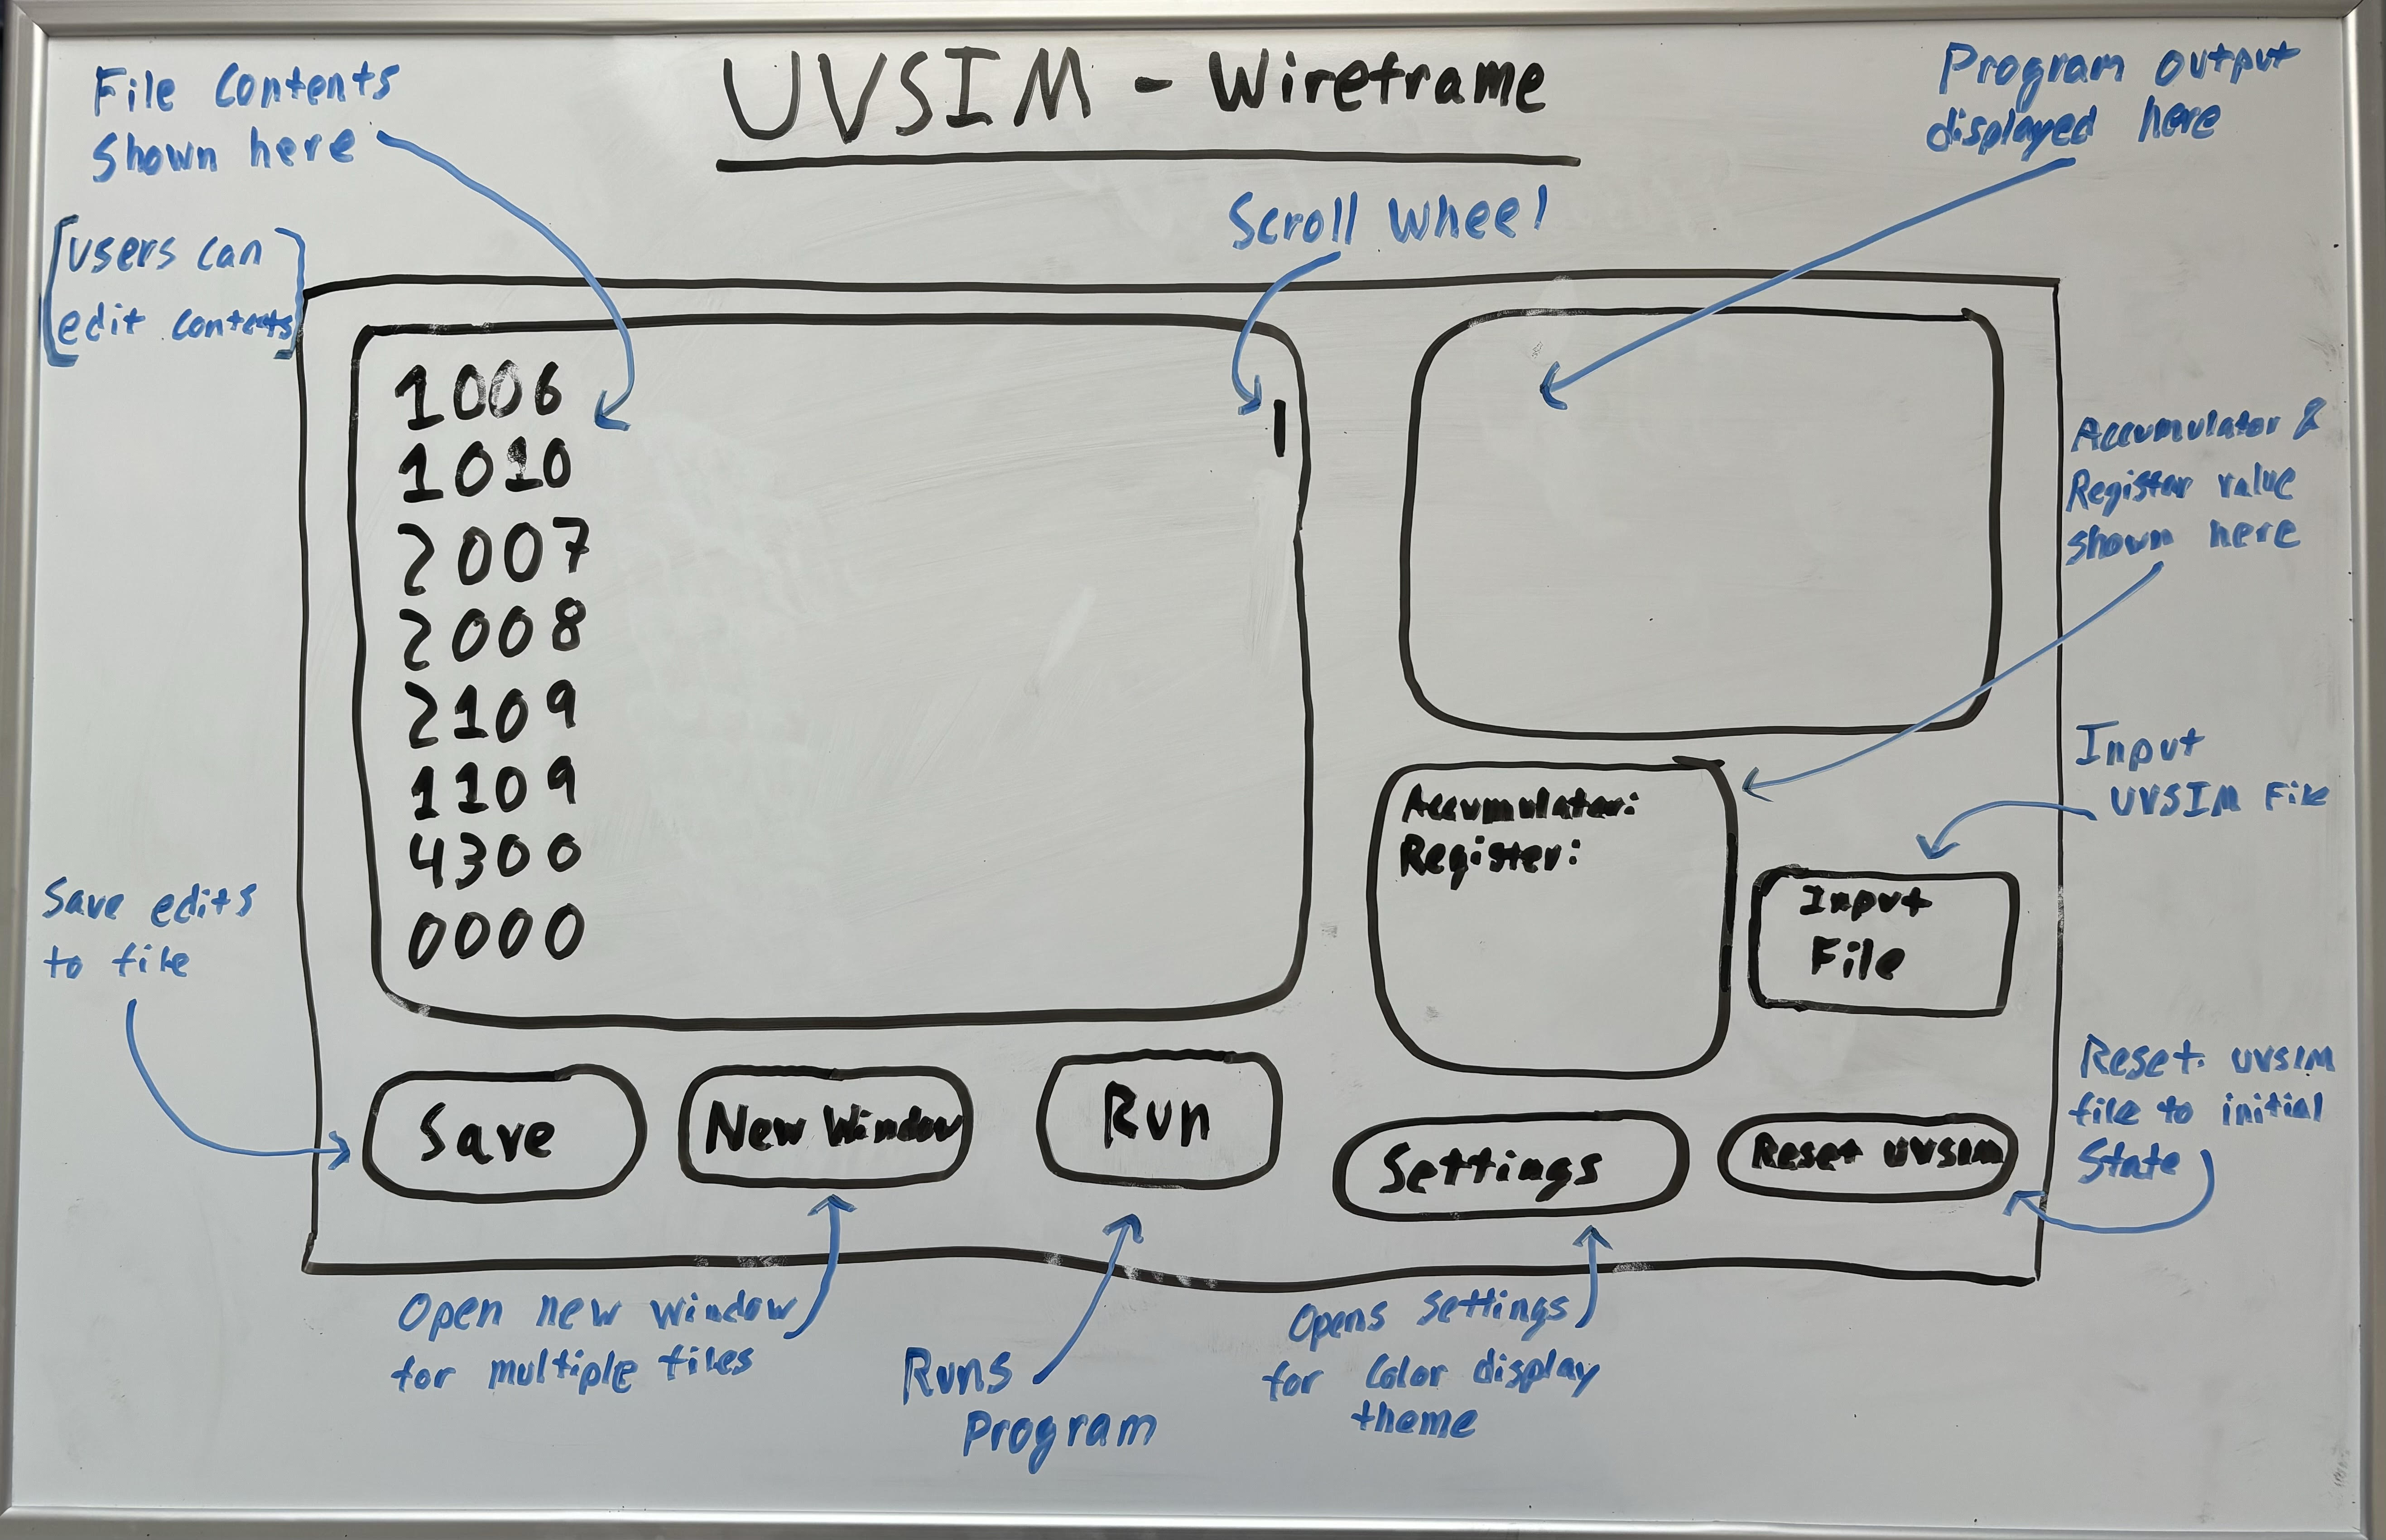 UVSIM - Wireframe
File Contents
Shown here
[users can
edit contents]
Scroll Wheel
Program output
displayed here
1006
1010
2007
2008
2109
1109
4300
0000
Accumulator &
Register value
shown here
Accumulator:
Register:
Input
UVSIM File
Input
File
Save edits
to file
Save
New Window
Run
Settings
Reset UVSIM
Reset UVSIM
file to initial
State
Open new window
for multiple files
Runs
Program
Opens settings
for Color display
theme